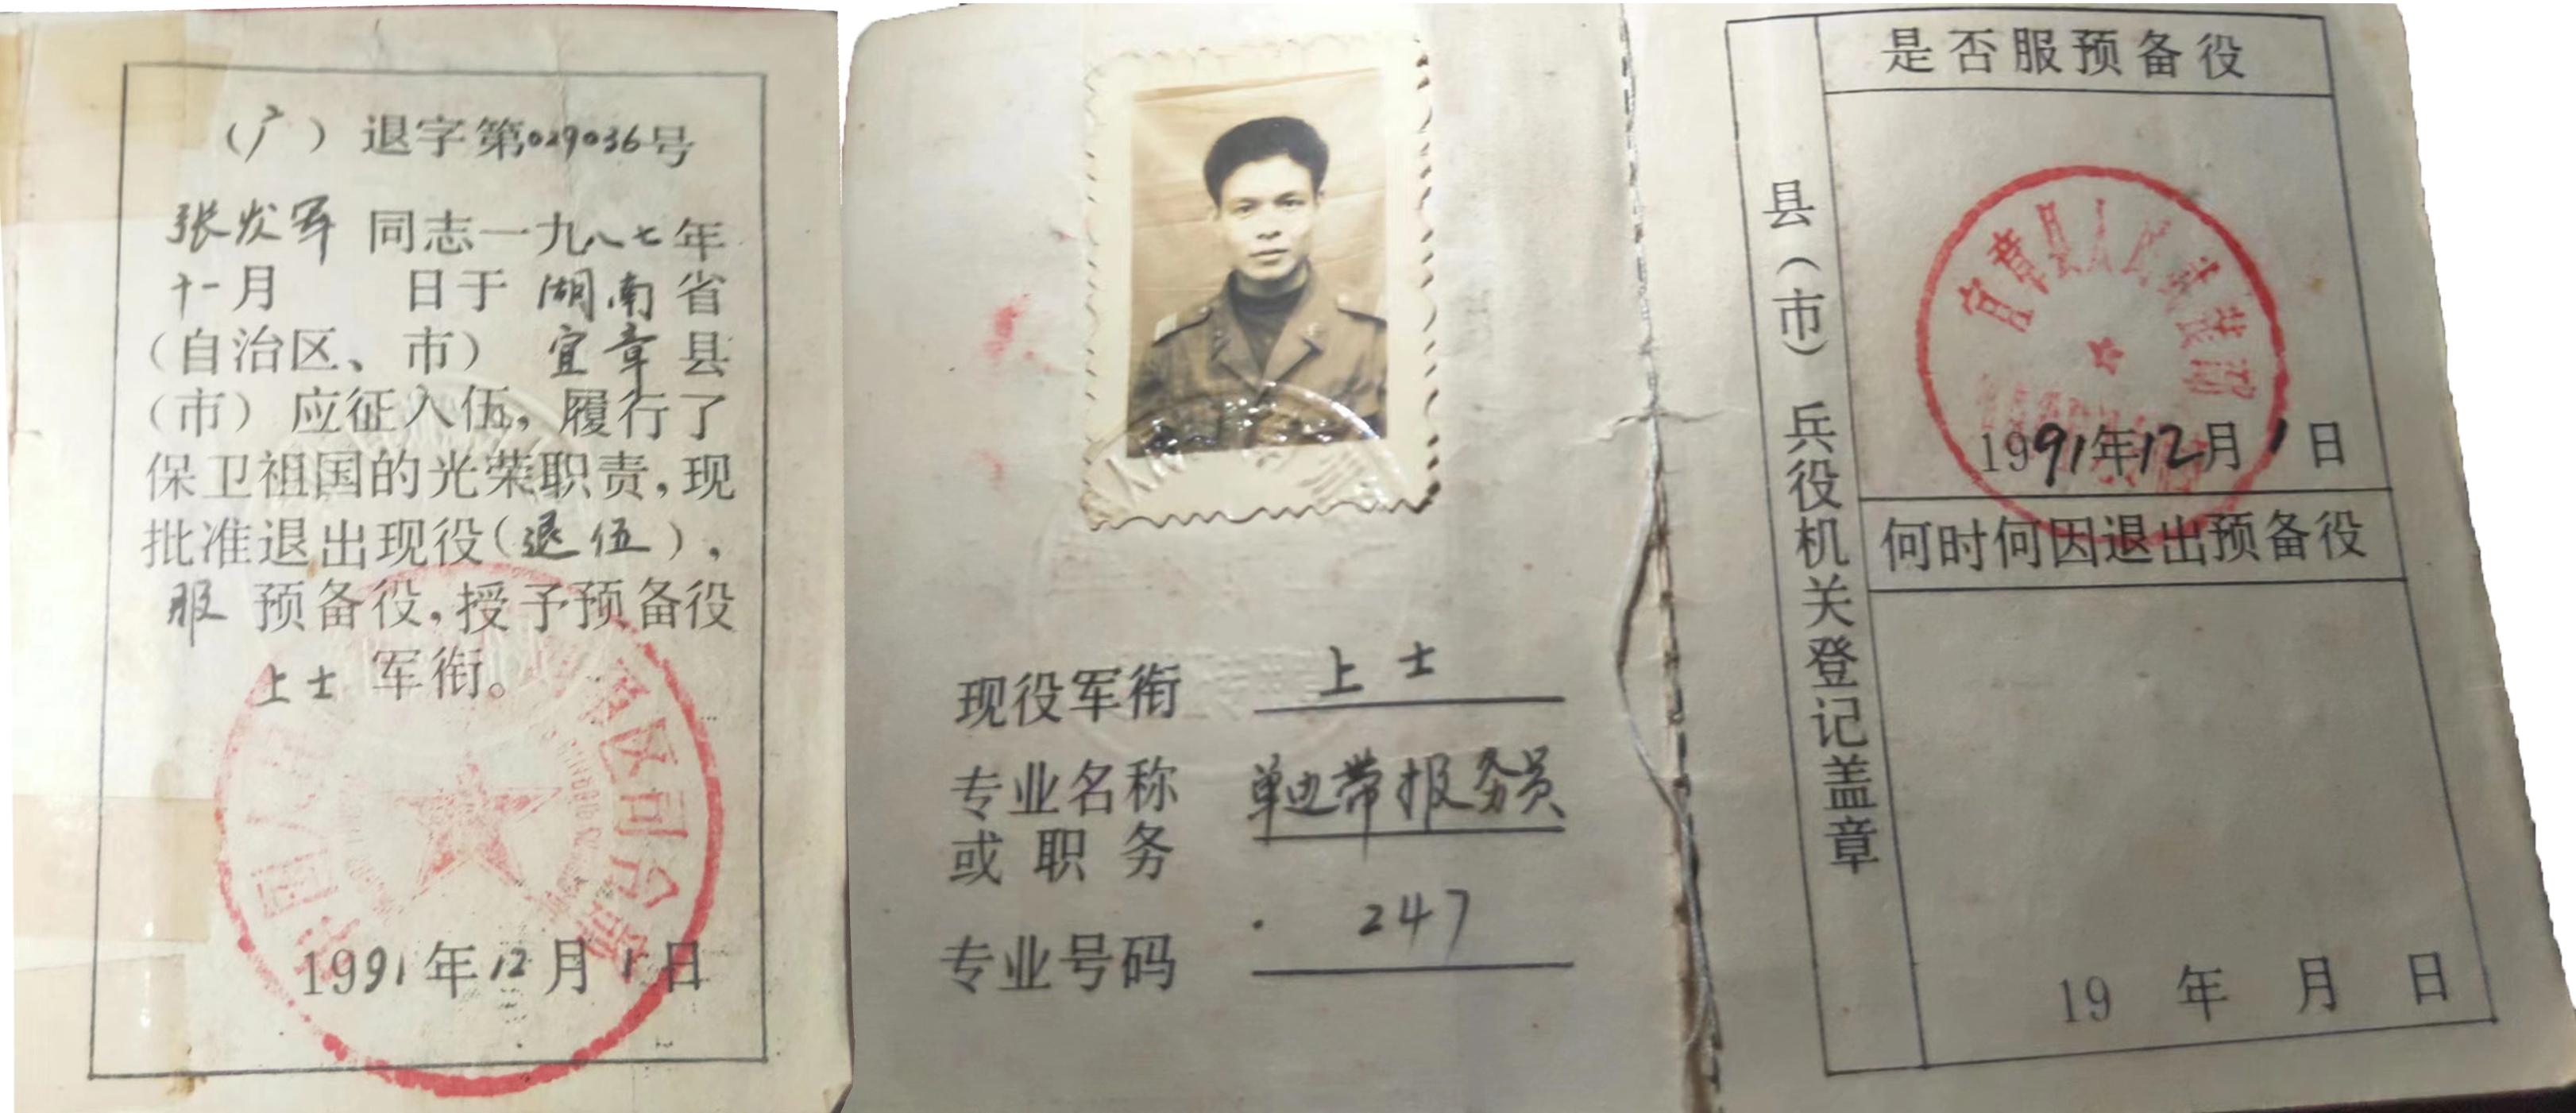 （广）退字第029036号
张发军 同志一九八七年
十一月 日于 湖南 省
（自治区、市） 宜章 县
（市）应征入伍，履行了
保卫祖国的光荣职责，现
批准退出现役（退伍），
服 预备役，授予预备役
上士 军衔。
1991年12月1日
现役军衔 上士
专业名称
或职务 单边带报务员
专业号码 247
县（市）兵役机关登记盖章
是否服预备役
宜章县人民武装部
1991年12月1日
何时何因退出预备役
19 年 月 日